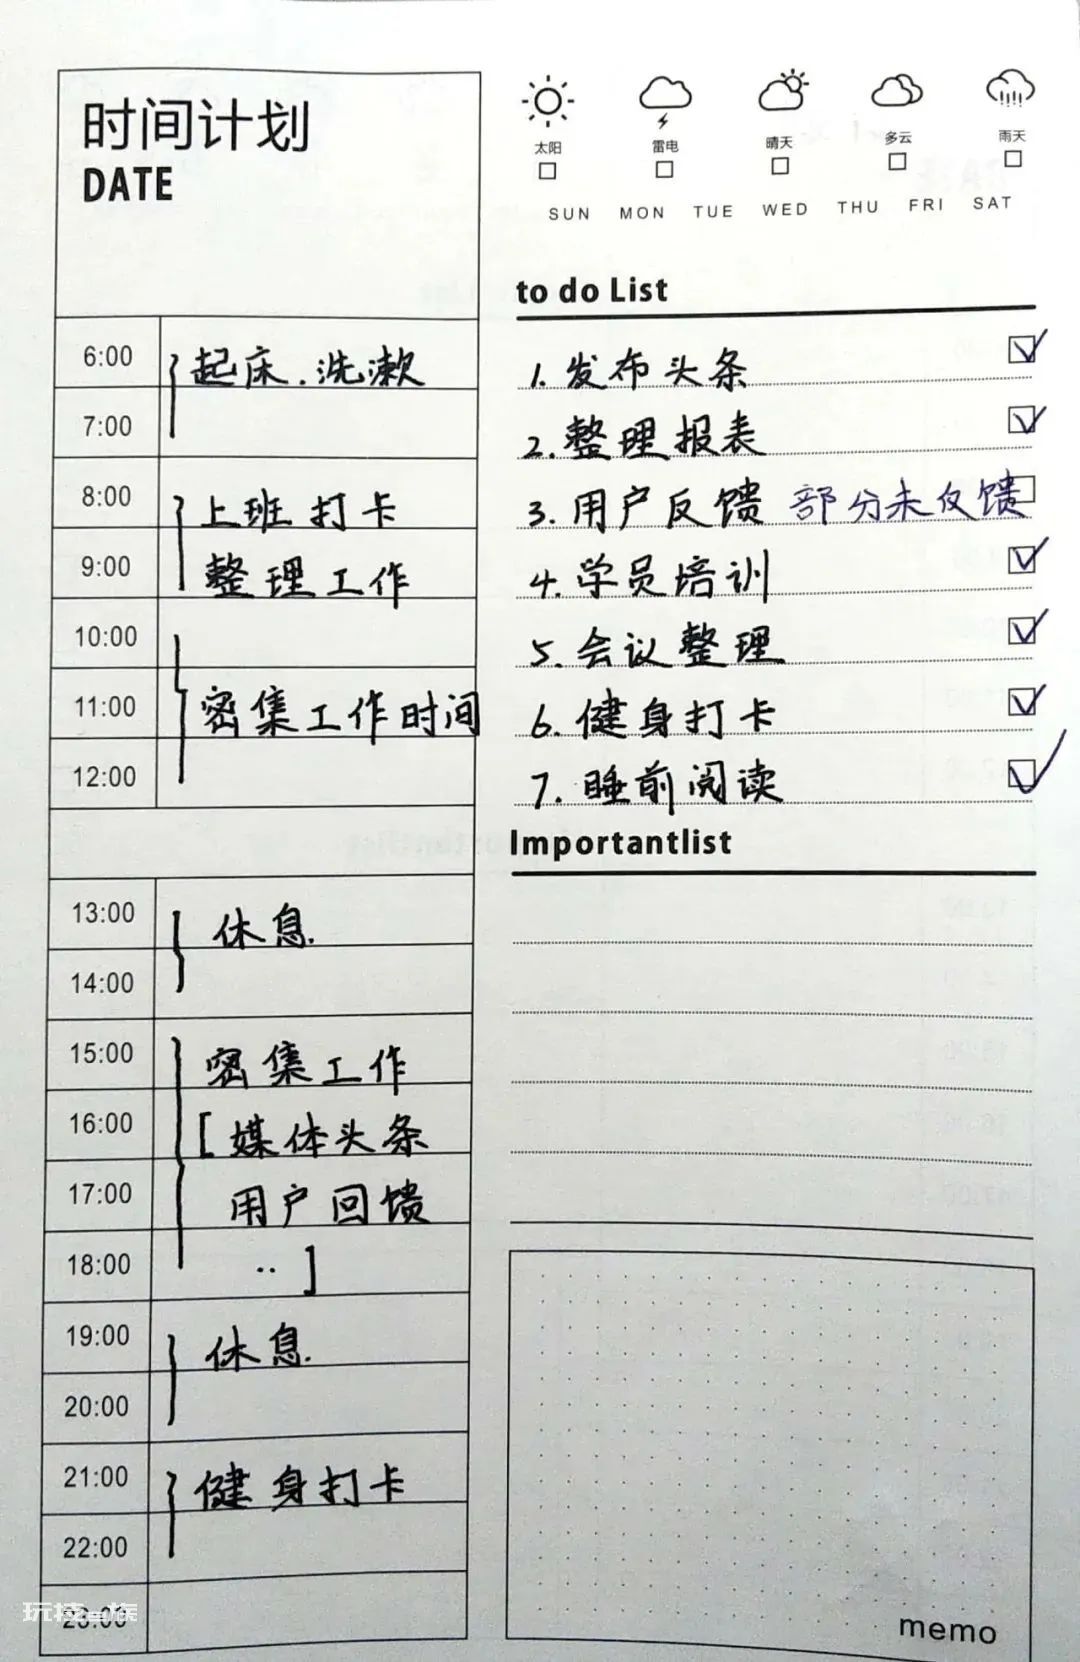 时间计划
DATE
太阳 雷电 晴天 多云 雨天
SUN MON TUE WED THU FRI SAT
6:00 起床.洗漱
7:00
8:00 上班打卡
9:00 整理工作
10:00
11:00 密集工作时间
12:00
13:00 休息.
14:00
15:00 密集工作
16:00 [媒体头条
17:00 用户回馈
18:00 ..]
19:00 休息.
20:00
21:00 健身打卡
22:00
23:00
to do List
1.发布头条
2.整理报表
3.用户反馈 部分未反馈
4.学员培训
5.会议整理
6.健身打卡
7.睡前阅读
Importantlist
memo
玩技e族